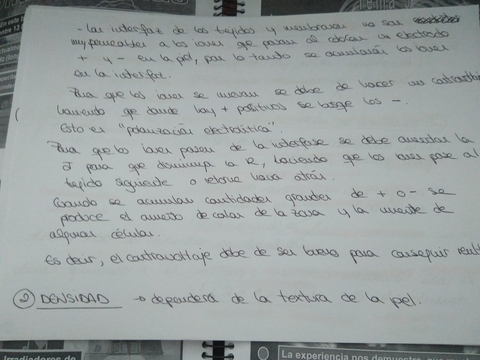 - Las interfaz de los tejidos y membranas no son
impermeables a los iones que pasan al colocar un electrodo
+ y - en la piel, por lo tanto se acumularán los iones
en la interfaz.
Para que los iones se muevan se debe de hacer un
haciendo que donde hay + positivos se ponga los -.
Esto es "polarización electrolítica".
Para que los iones pasen de la interfase se debe aumentar la
I para que disminuya la R, haciendo que los iones pase al
tejido siguiente o retorne hacia atrás.
Cuando se acumulan cantidades grandes de + o - se
produce el aumento de calor de la zona y la muerte de
algunas células.
Es decir, el contravoltaje debe de ser breve para conseguir
2 DENSIDAD → dependerá de la textura de la piel.
Irradiadores de
La experiencia nos demuestra que